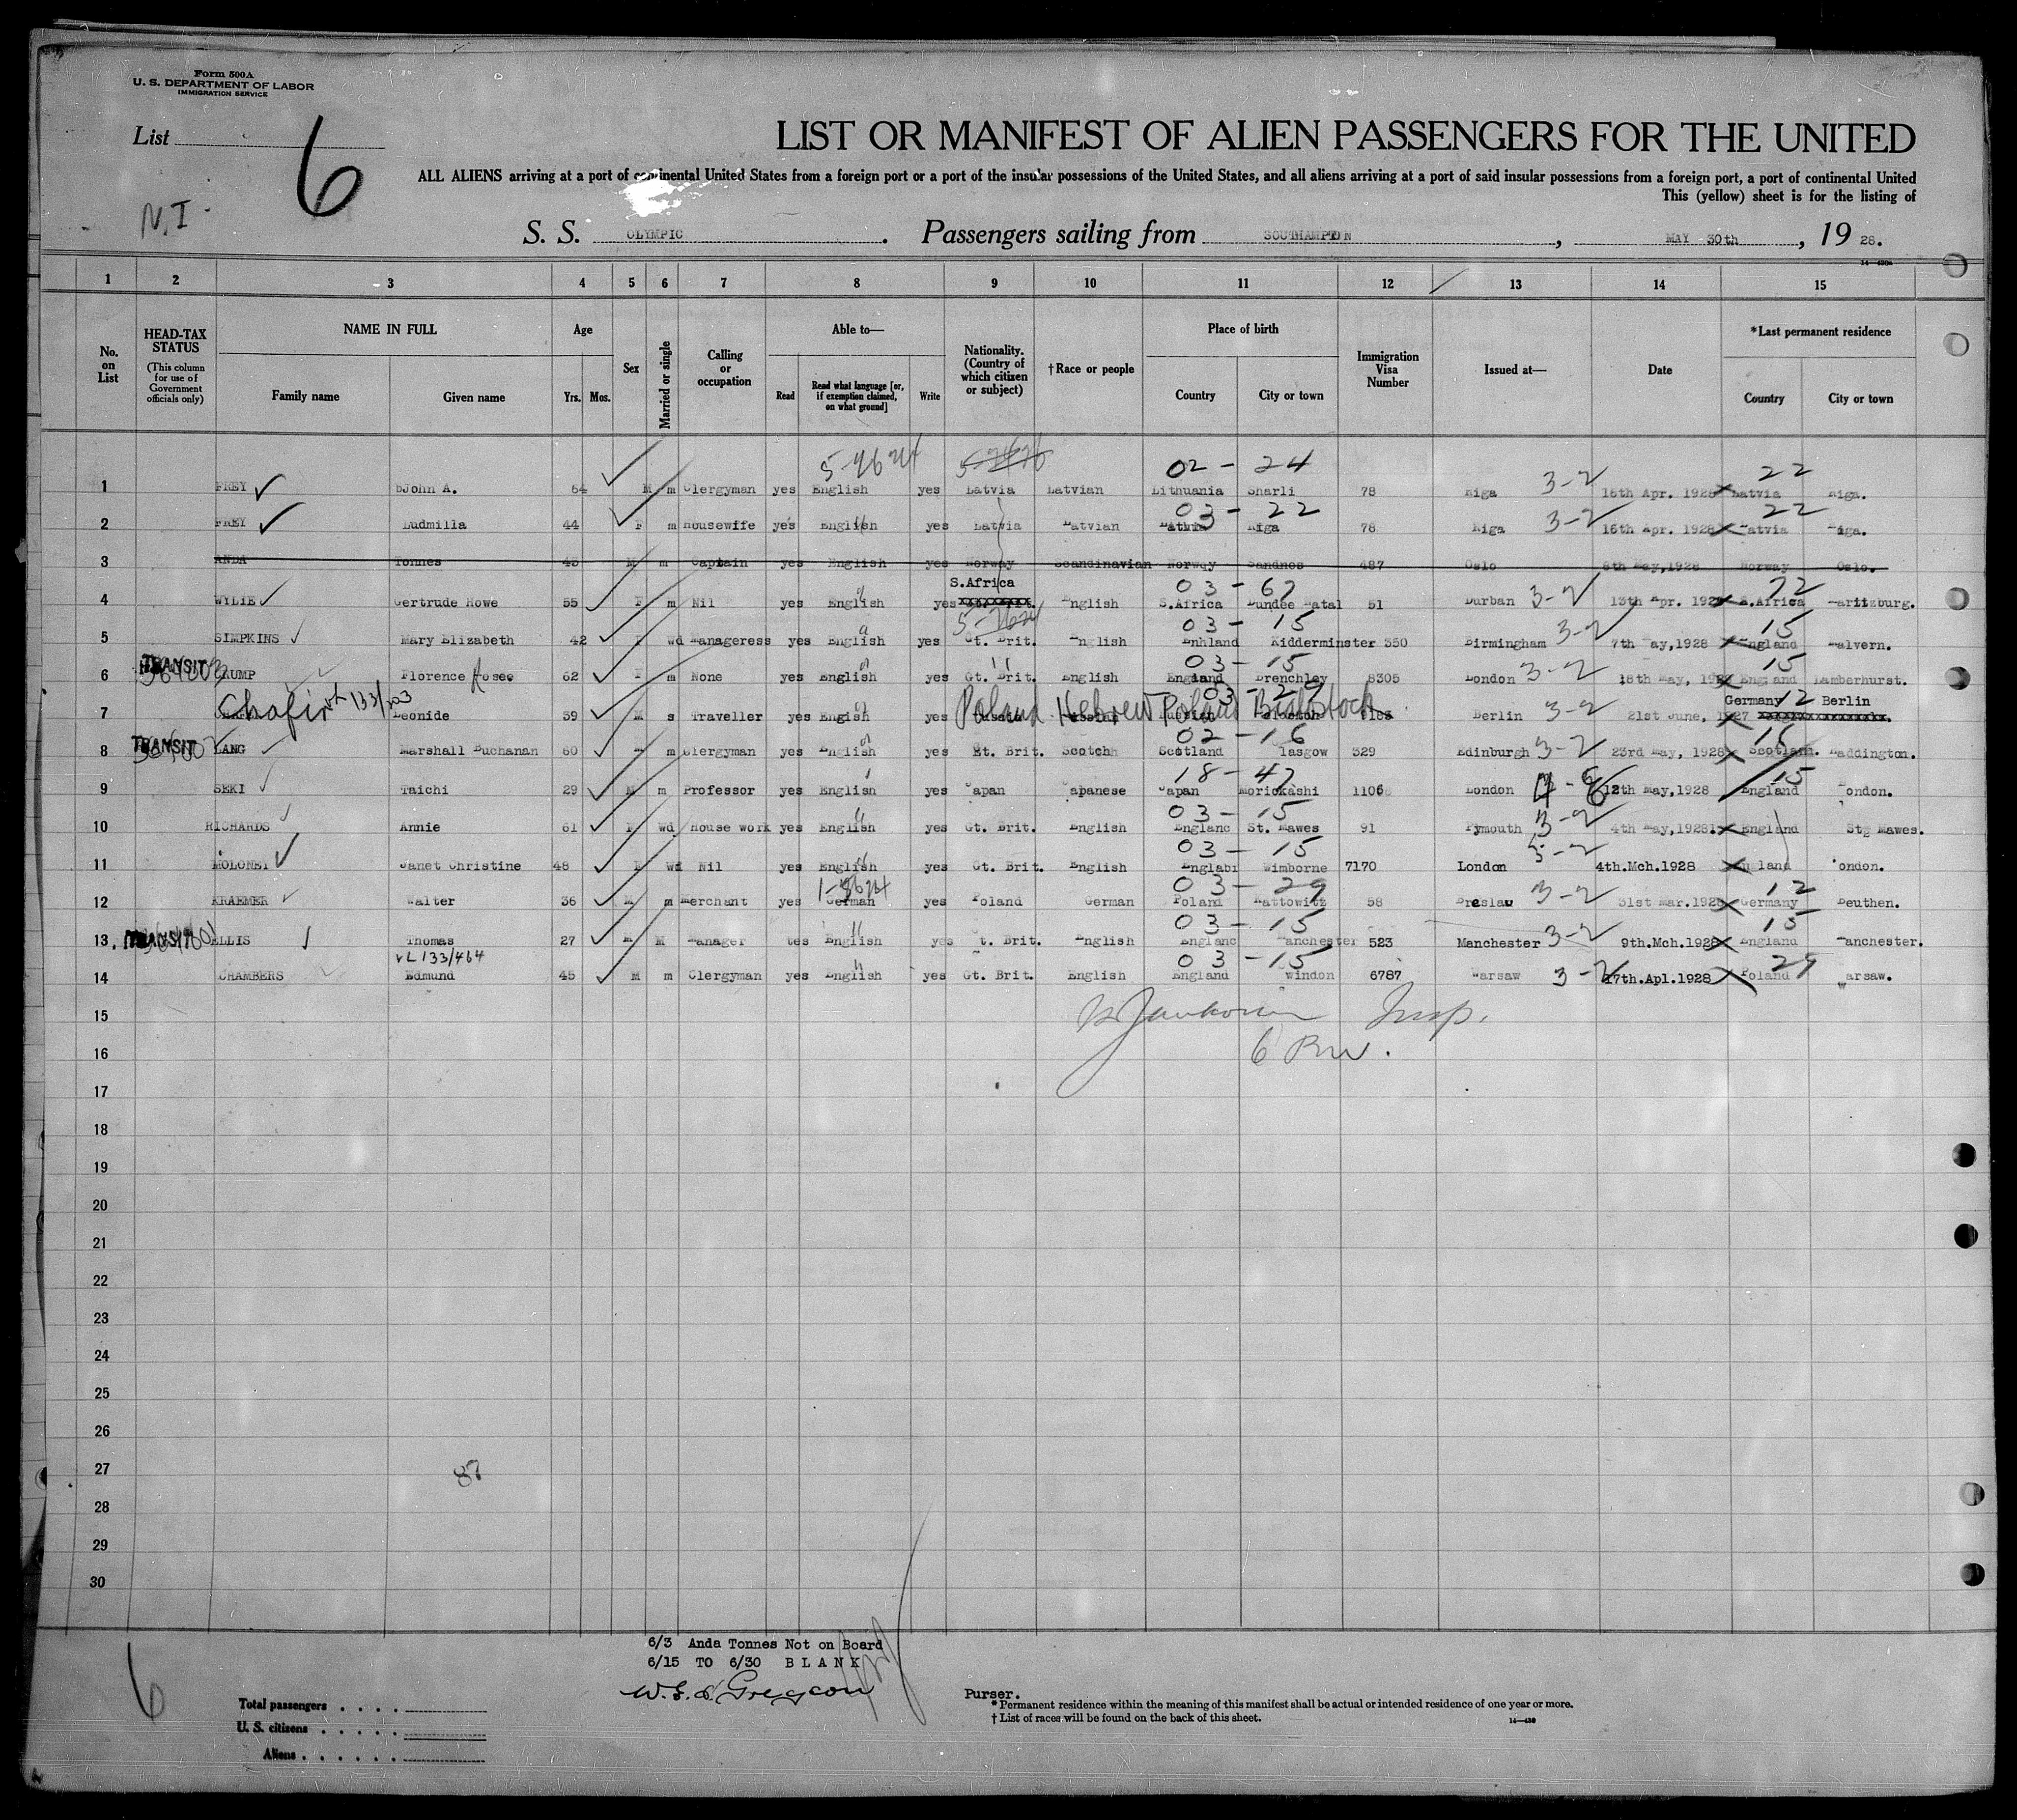 Form 500A
U. S. DEPARTMENT OF LABOR
IMMIGRATION SERVICE
List
6
N.I.
LIST OR MANIFEST OF ALIEN PASSENGERS FOR THE UNITED
ALL ALIENS arriving at a port of continental United States from a foreign port or a port of the insular possessions of the United States, and all aliens arriving at a port of said insular possessions from a foreign port, a port of continental United
This (yellow) sheet is for the listing of
S. S. OLYMPIC . Passengers sailing from SOUTHAMPTON , MAY 30th , 19 28.
1 2 3 4 5 6 7 8 9 10 11 12 13 14 15
No. on List
HEAD-TAX STATUS (This column for use of Government officials only)
NAME IN FULL
Family name Given name
Age Yrs. Mos.
Sex
Married or single
Calling or occupation
Able to—
Read Read what language [or, if exemption claimed, on what ground] Write
Nationality. (Country of which citizen or subject)
†Race or people
Place of birth
Country City or town
Immigration Visa Number
Issued at—
Date
*Last permanent residence
Country City or town
02 - 24 22
1 FREY bJohn A. 64 M m Clergyman yes English yes Latvia Latvian Lithuania Sharli 78 Riga 3-2 16th Apr. 1928 Latvia Riga.
03 - 22 22
2 FREY Ludmilla 44 F m Housewife yes English yes Latvia Latvian Riga 78 Riga 3-2 16th Apr. 1928 Latvia Riga.
3 ANDA Tonnes 43 M m Captain yes English yes Norway Scandinavian Norway Sandnes 487 Oslo 8th May,1928 Norway Oslo.
S.Africa 03 - 67
4 WYLIE Gertrude Howe 55 F m Nil yes English yes English S.Africa Dundee Natal 51 Durban 3-2 13th Apr. S.Africa Maritzburg.
03 - 15 15
5 SIMPKINS Mary Elizabeth 42 F wd Manageress yes English yes Gt. Brit. English Enhland Kidderminster 350 Birmingham 3-2 7th May,1928 England Malvern.
TRANSIT 03 - 15 15
6 Florence Rosee 62 F m None yes English yes Gt. Brit. English England Brenchley 8305 London 3-2 18th May, England Lamberhurst.
Chafir 133/203 Poland Hebrew Poland Bialistock 03 - 29 Germany 12 Berlin
7 Leonide 39 M s Traveller yes Engish yes Berlin 3-2 21st June, 1927
TRANSIT 02 - 16 16
8 LANG Marshall Buchanan 60 m Clergyman yes English yes Gt. Brit. Scotch Scotland Glasgow 329 Edinburgh 3-2 23rd May, 1928 Scotland. Haddington.
18 - 47 15
9 SEKI Taichi 29 M m Professor yes English yes Japan Japanese Japan Moriokashi 1106 London 12th May,1928 England London.
03 - 15
10 RICHARDS Annie 61 F wd House work yes English yes Gt. Brit. English Englanc St. Mawes 91 Plymouth 3-2 4th May,1928 England Stg Mawes.
03 - 15
11 MOLONEY Janet Christine 48 F Wd Nil yes English yes Gt. Brit. English Wimborne 7170 London 3-2 4th.Mch.1928 England London.
03 - 29 12
12 KRAEMER Walter 36 M m Merchant yes German yes Poland German Poland Kattowitz 58 Breslau 3-2 31st Mar.1928 Germany Beuthen.
TRANSIT 03 - 15 15
13. ELLIS Thomas 27 M M Manager yes English yes Gt. Brit. English Englanc Manchester 523 Manchester 3-2 9th.Mch.1928 England Manchester.
VL 133/464 03 - 15 29
14 CHAMBERS Edmund 45 M m Clergyman yes English yes Gt. Brit. English England Swindon 6787 Warsaw 3-2 17th.Apl.1928 Poland Warsaw.
15 Insp.
16
17
18
19
20
21
22
23
24
25
26
27 87
28
29
30
6/3 Anda Tonnes Not on Board
6/15 TO 6/30 B L A N K
Purser.
6
Total passengers
U. S. citizens
Aliens
* Permanent residence within the meaning of this manifest shall be actual or intended residence of one year or more.
† List of races will be found on the back of this sheet.